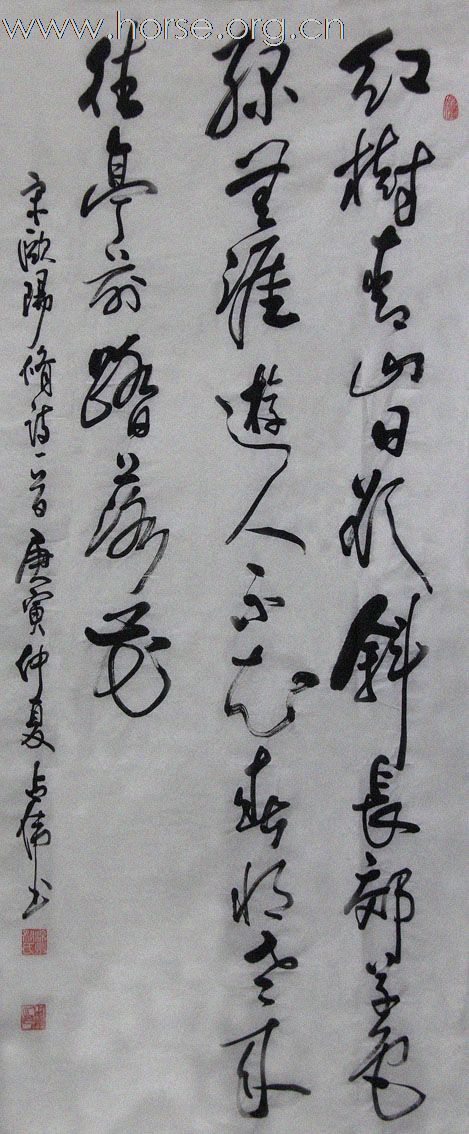 www.horse.org.cn
红樹青山日欲斜長郊草色
绿無涯遊人不管春将老来
往亭前踏落花
宋歐陽脩诗一首庚寅仲夏占偉书